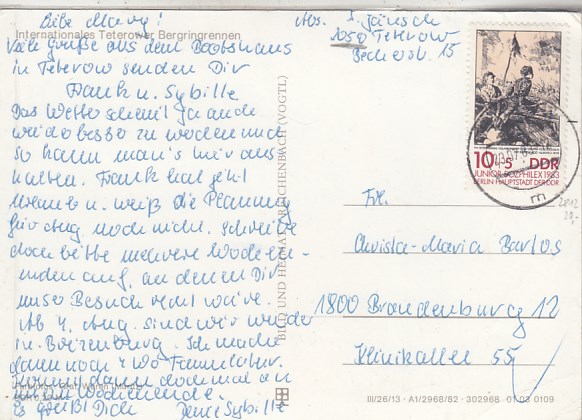 Liebe Mary!
Internationales Teterower Bergringrennen
Viele Grüße aus dem Bootshaus
in Teterow senden Dir
Frank u. Sybille
Das Wetter scheint ja auch
wieder besser zu werden und
so kann man's hier aus-
halten. Frank hat jetzt
Urlaub u. weiß die Planung
für Aug. noch nicht. Schreibe
doch bitte mehrere Wochen-
enden auf, an denen Dir
unser Besuch recht wäre.
Ab 4. Aug. sind wir wieder
in Boizenburg. Ich mache
dann noch 4 Wo
dann doch mal an
Wochenende.
Es grüßt Dich Deine Sybille
BILD UND HEIMAT REICHENBACH (VOGTL)
Abs. I. Jänsch
1050 Teterow
15
10+5 DDR
JUNIOR-SOZPHILEX 1983
BERLIN HAUPTSTADT DER DDR
Frl.
Christa-Maria Bartos
1800 Brandenburg 12
Klinikallee 55
III/26/13 · A1/2968/82 · 302968 01 03 0109